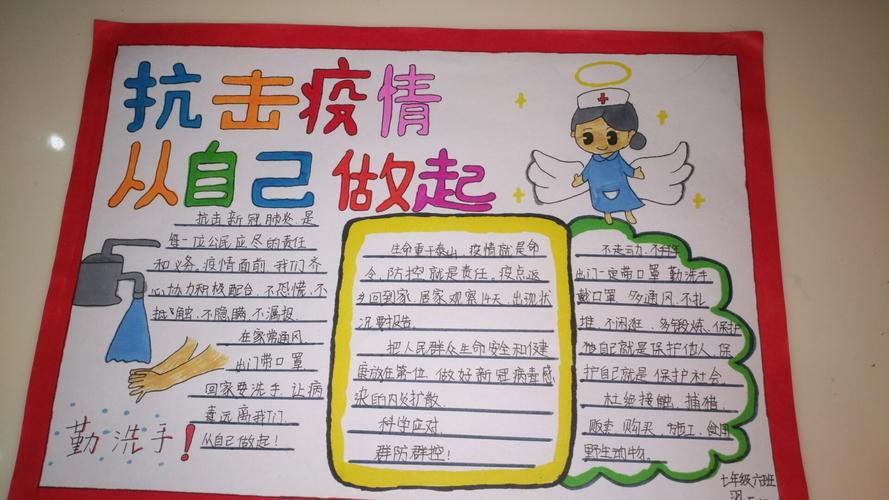 抗击疫情
从自己做起
抗击新冠肺炎,是
每一位公民应尽的责任
和义务。疫情面前,我们齐
心协力积极配合,不恐慌,不
抵触,不隐瞒,不漏报
在家常通风
出门带口罩
回家要洗手,让病
毒远离我们
从自己做起!
勤洗手!
生命重于泰山,疫情就是命
令,防控就是责任。疫点返
乡回到家,居家观察14天,出现状
况要报告。
把人民群众生命安全和健
康放在第一位,做好新冠病毒感
染的内外扩散
科学应对
群防群控!
不走动,不
出门一定带口罩,勤洗手
戴口罩,多通风,不扎
堆,不闲逛,多锻炼,保护
自己就是保护他人,保
护自己就是保护社会。
杜绝接触,捕猎,
贩卖,购买,加工,食用
野生动物。
七年级六班